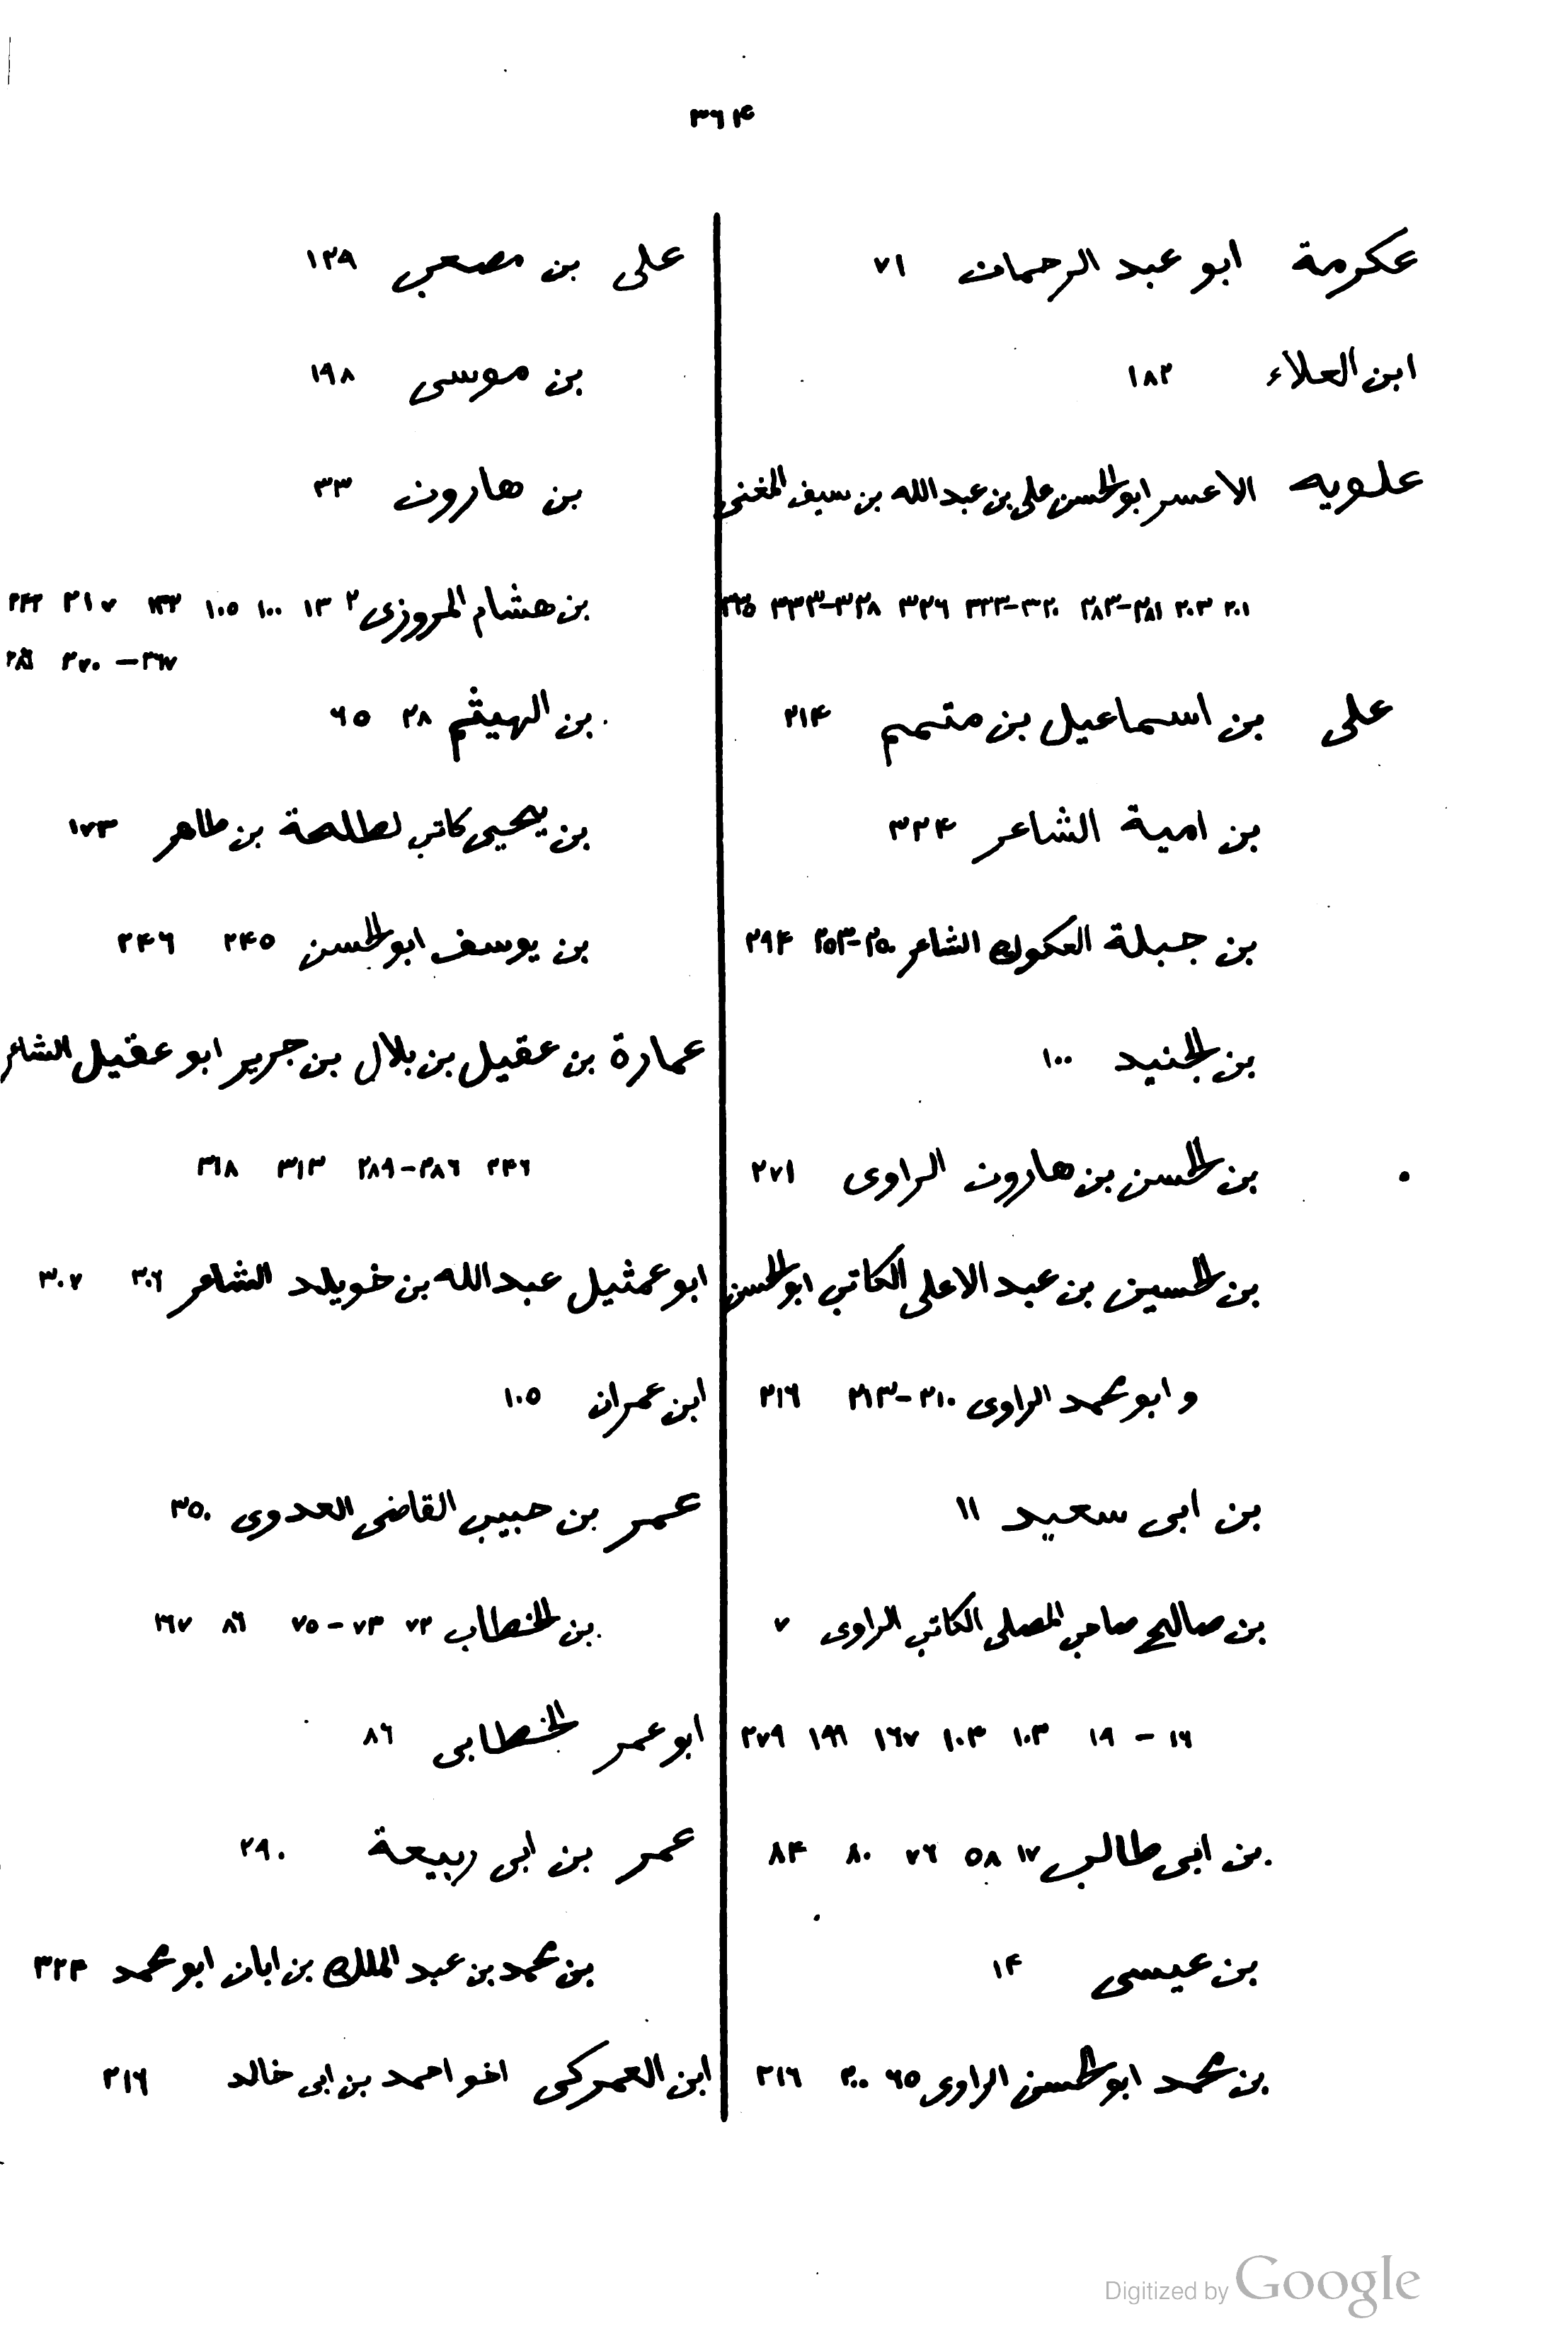 ٣٦٤
عكرمة ابو عبد الرحمان ٧١
ابن العلاء ١٨٢
علويه الاعسر ابو الحسن على بن عبد الله بن سيف المغنى
٢٠١ ٢٠٣ ٢٨١-٢٨٣ ٣٢٠-٣٢٣ ٣٢٦ ٣٢٨-٣٣٣
على بن اسماعيل بن متمم ٢١٤
بن امية الشاعر ٣٢٤
بن جبلة العكوك الشاعر ٢٥٠-٢٥٣ ٢٩٤
بن الجنيد ١٠٠
بن الحسن بن هارون الراوى ٢٧١
بن الحسين بن عبد الاعلى الكاتب ابو الحسن
و ابو محمد الراوى ٢١٠-٢١٣ ٢١٦
بن ابى سعيد ١١
بن صالح صاحب المصلى الكاتب الراوى ٧
١٦ - ١٩ ١٠٣ ١٠٤ ١٦٧ ١٩٩ ٢٧٩
بن ابى طالب ١٧ ٥٨ ٧٦ ٨٠ ٨٤
بن عيسى ١٤
بن محمد ابو الحسن الراوى ٦٥ ٢٠٠ ٢١٦
على بن مصعب ١٢٩
بن موسى ١٩٨
بن هارون ٣٣
بن هشام المروزى ٢ ١٣ ١٠٠ ١٠٥ ٢١٧
٢٦٧ - ٢٧٠
بن الهيثم ٢٨ ٦٥
بن يحيى كاتب لطلحة بن طاهر ١٧٣
بن يوسف ابو الحسن ٢٤٥ ٢٤٦
عمارة بن عقيل بن بلال بن جرير ابو عقيل الشاعر
٢٤٦ ٢٨٦-٢٨٩ ٣١٣ ٣٦٨
ابو عمثيل عبد الله بن خويلد الشاعر ٣٠٦ ٣٠٧
ابن عمران ١٠٥
عمر بن حبيب القاضى العدوى ٣٥٠
بن الخطاب ٧٢ ٧٣ - ٧٥ ٨٦ ٢٦٧
ابو عمر الخطابى ٨٦
عمر بن ابى ربيعة ٢٩٠
بن محمد بن عبد الملك بن ابان ابو محمد ٣٢٣
ابن العمركى اخو احمد بن ابى خالد ٢١٦
Digitized by Google